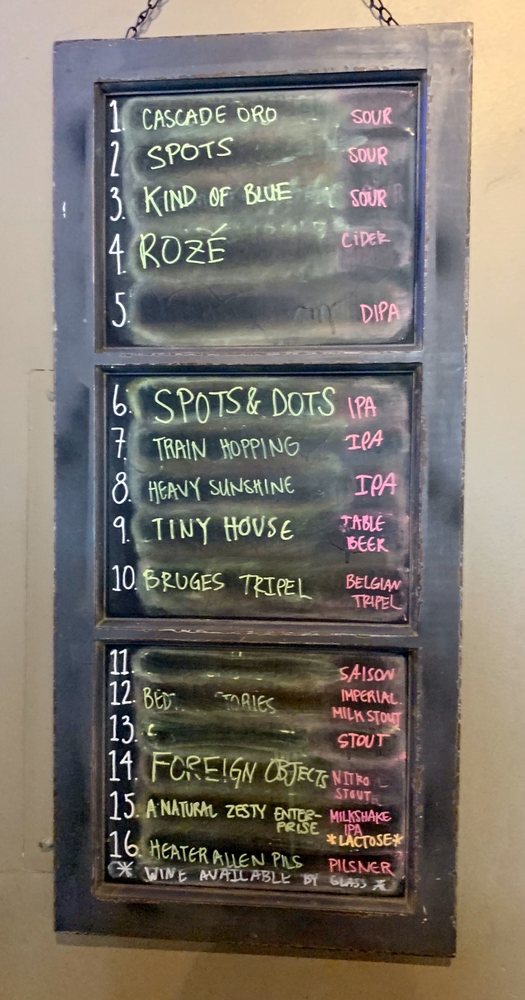 1. CASCADE ORO SOUR
2 SPOTS SOUR
3. KIND OF BLUE SOUR
4. ROZÉ CIDER
5. DIPA
6. SPOTS & DOTS IPA
7. TRAIN HOPPING IPA
8. HEAVY SUNSHINE IPA
9. TINY HOUSE TABLE
BEER
10. BRUGES TRIPEL BELGIAN
TRIPEL
11. SAISON
12. BED IMPERIAL
MILK STOUT
13. STOUT
14. FOREIGN OBJECTS NITRO
STOUT
15. A NATURAL ZESTY ENTER- MILKSHAKE
PRISE IPA
*LACTOSE*
16. HEATER ALLEN PILS PILSNER
* WINE AVAILABLE BY GLASS *